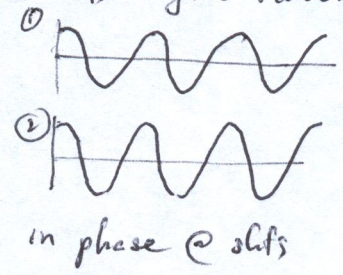 ①
②
in phase @ slits